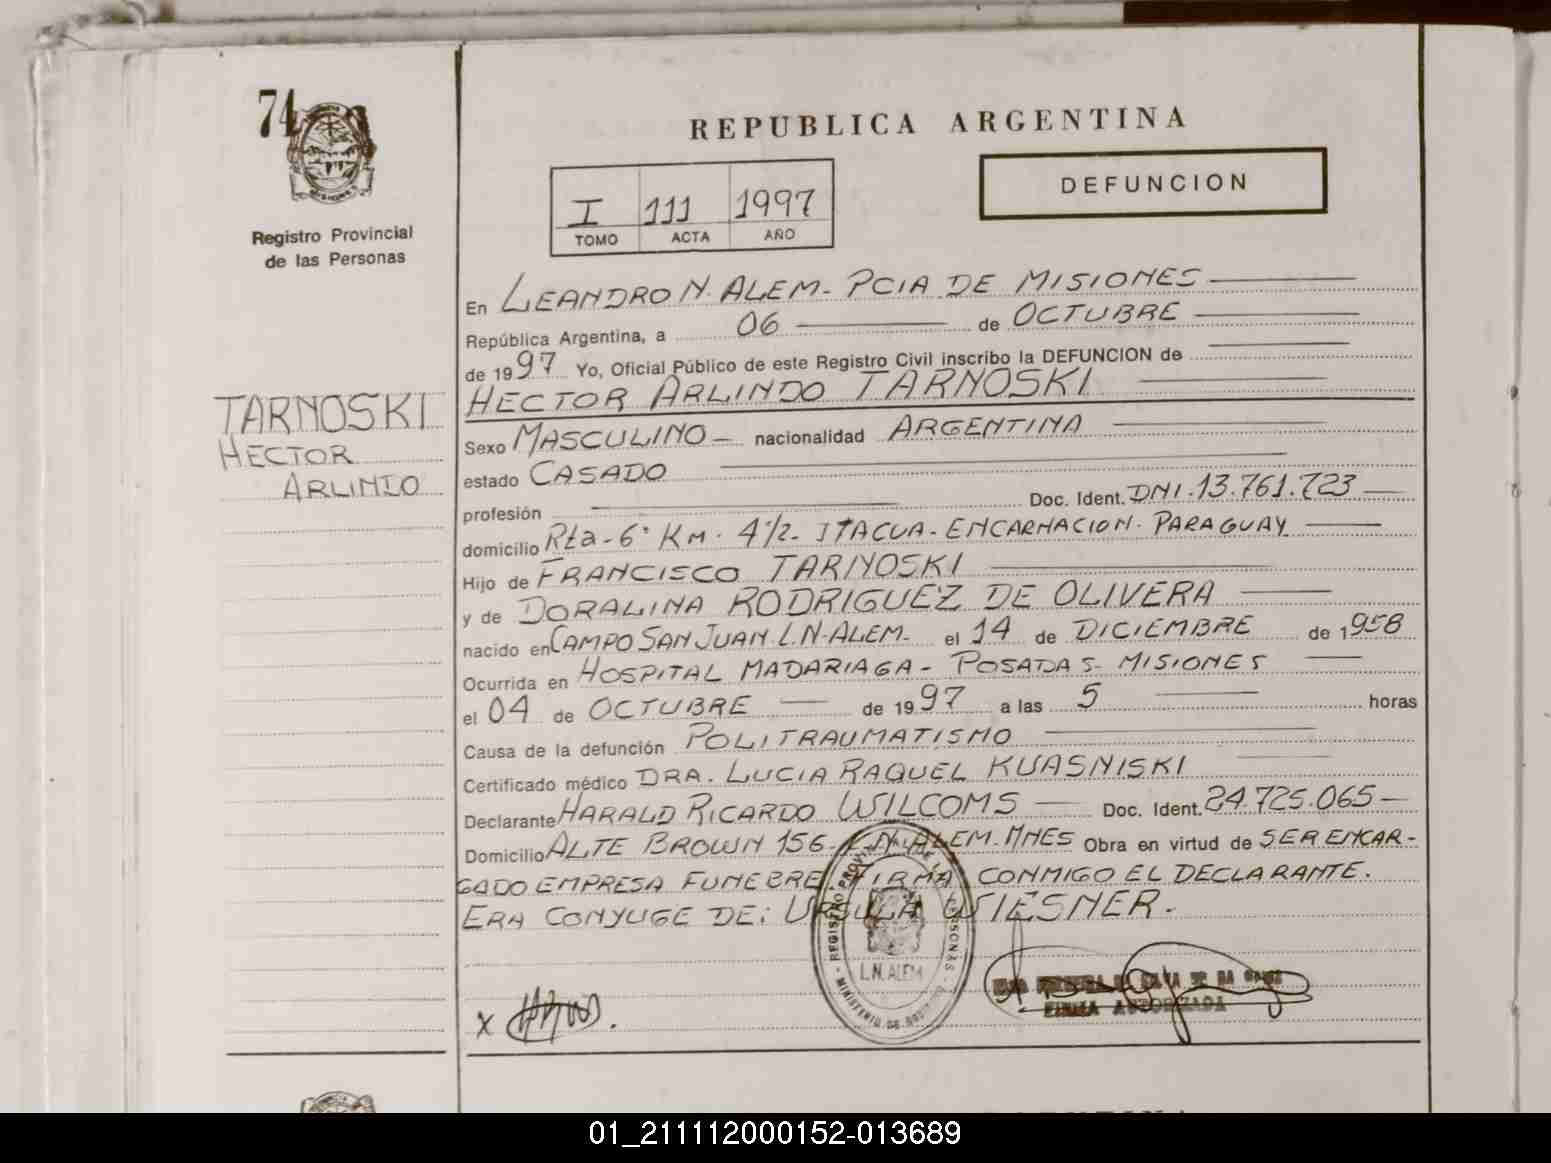 74
Registro Provincial
de las Personas
TARNOSKI
HECTOR
ARLINDO
REPUBLICA ARGENTINA
I 111 1997
TOMO ACTA AÑO
DEFUNCION
En LEANDRO N. ALEM - PCIA DE MISIONES
República Argentina, a 06 de OCTUBRE
de 1997 Yo, Oficial Público de este Registro Civil inscribo la DEFUNCION de
HECTOR ARLINDO TARNOSKI
Sexo MASCULINO - nacionalidad ARGENTINA
estado CASADO
profesión Doc. Ident. DNI. 13.761.723
domicilio Rta - 6° Km. 4½ - ITACUA - ENCARNACION. PARAGUAY
Hijo de FRANCISCO TARNOSKI
y de DORALINA RODRIGUEZ DE OLIVERA
nacido en CAMPO SAN JUAN L.N-ALEM- el 14 de DICIEMBRE de 1958
Ocurrida en HOSPITAL MADARIAGA - POSADAS - MISIONES
el 04 de OCTUBRE de 1997 a las 5 horas
Causa de la defunción POLITRAUMATISMO
Certificado médico DRA. LUCIA RAQUEL KUASNISKI
Declarante HARALD RICARDO WILCOMS Doc. Ident. 24.725.065 -
Domicilio ALTE BROWN 156 - L-N-ALEM-MNES Obra en virtud de SER ENCAR-
GADO EMPRESA FUNEBRE. FIRMA CONMIGO EL DECLARANTE.
ERA CONYUGE DE: URSULA WIESNER.
REGISTRO PROVINCIAL DE LAS PERSONAS
L.N. ALEM
MINISTERIO DE
x
FIRMA AUTORIZADA
01_211112000152-013689